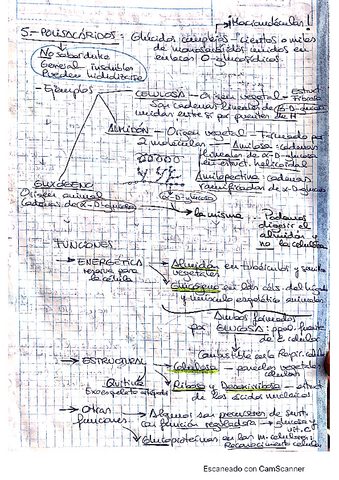 → Macromoléculas!
5.- POLISACÁRIDOS: Glúcidos complejos - cientos o miles
de monosacáridos unidos en
enlaces O-glucosídicos.
No sabor dulce
General insolubles
Pueden hidrolizarse
- Ejemplos
CELULOSA - Origen vegetal - Estruct
Son cadenas lineales de β-D-glucosa
unidas entre sí por puentes de H
ALMIDÓN - Origen vegetal - Formado por
2 moléculas Amilosa: cadenas
lineales de α-D-glucosa
estruct. helicoidal
Amilopectina: cadenas
ramificadas de α-D-glucosa
GLUCÓGENO
Origen animal
Cadenas de α-D-glucosa
α-D-glucosa
→ la misma → Podemos
digerir el
almidón y
no la celulosa
FUNCIONES
→ ENERGÉTICA
reserva para
la célula
→ Almidón en tubérculos y semillas
vegetales
→ Glucógeno en las céls. del hígado
y músculo esquelético animales
Ambos formados
por GLUCOSA: ppal. fuente
de E celular
Combustible en la Respir. celular
→ ESTRUCTURAL
→ Celulosa - paredes vegetales
celulares
Quitina
Exoesqueleto
→ Ribosa y Desoxirribosa - estruct
de los ácidos nucleicos
→ Otras
funciones
→ Algunos son precursores de sust.
con función reguladora → glucosa y
vit. C
→ Glucoproteínas en las m. celulares:
Reconocimiento celular
Escaneado con CamScanner